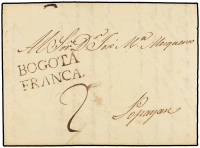 Al Sor. Dn. José Ma. Mosquera
BOGOTÁ
FRANCA.
2
Popayan